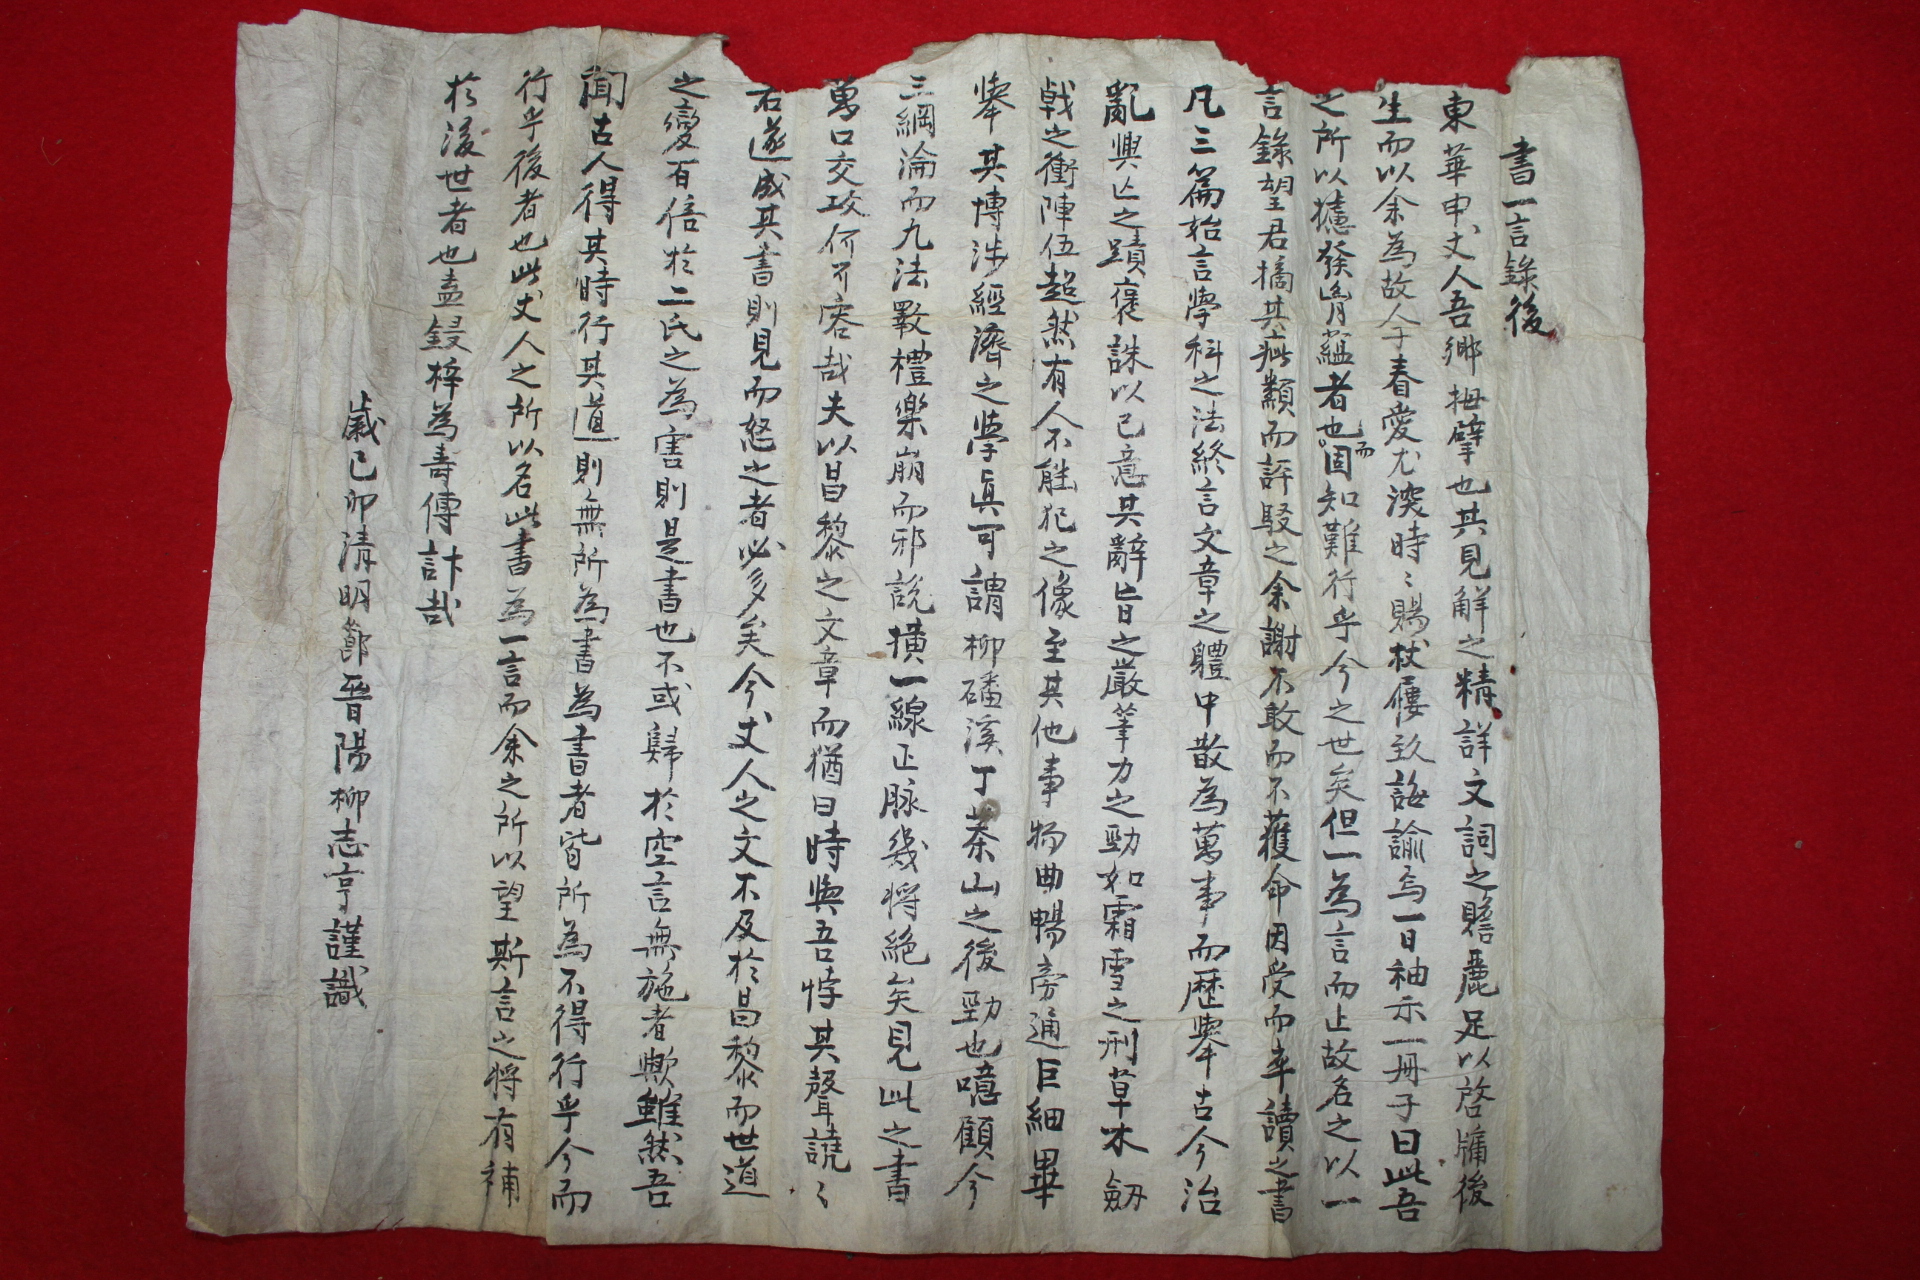 書一言錄後
東華申丈人吾鄉拇擘也其見解之精詳文詞之贍麗足以啓牖後
生而以余為故人子春愛尤深時〻賜杖屨致誨諭焉一日袖示一冊子曰此吾
之所以攄發胷蘊者也而固知難行乎今之世矣但一為言而止故名之以一
言錄望君摘其疵纇而評駁之余謝不敢而不獲命因受而卒讀之書
凡三篇始言學科之法終言文章之軆中散為萬事而歷擧古今治
亂興亡之蹟褒誅以己意其辭旨之嚴筆力之勁如霜雪之刑草木劒
戟之衝陣伍超然有人不能犯之像至其他事物曲暢旁通巨細畢
擧其博涉經濟之學眞可謂柳磻溪丁茶山之後勁也噫顧今
三綱淪而九法斁禮樂崩而邪說橫一線正脉幾將絶矣見此之書
萬口交攻何不容哉夫以昌黎之文章而猶曰時與吾悖其聲譊〻
若遂成其書則見而怒之者必多矣今丈人之文不及於昌黎而世道
之變有倍於二氏之為害則是書也不或歸於空言無施者歟雖然吾
聞古人得其時行其道則無所為書為書者皆所為不得行乎今而
行乎後者也此丈人之所以名此書為一言而余之所以望斯言之將有補
於後世者也盍鋟梓為壽傳計哉
歲己卯清明節晉陽柳志亨謹識